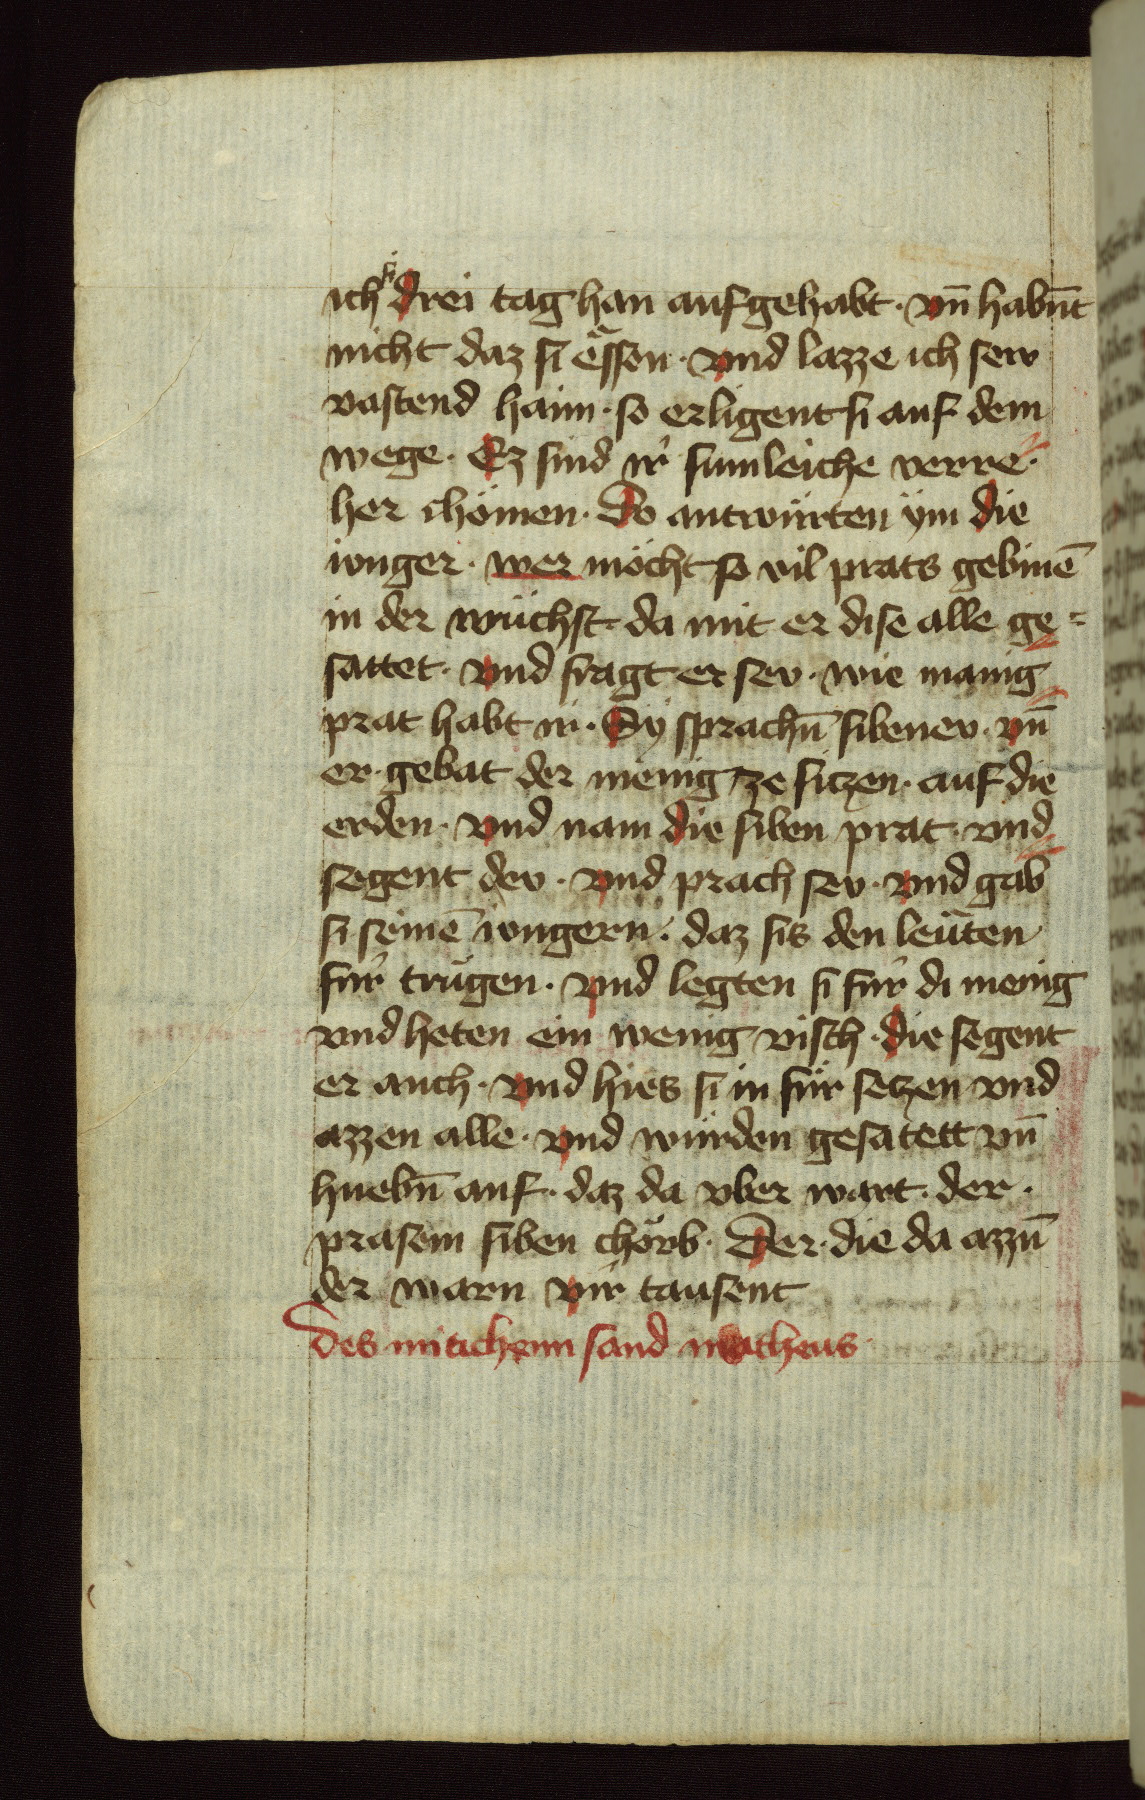 ich si drei tag han aufgehabt · vn̄ habn̄t
nicht daz si ëssen · vnd lazze ich sew
vastend haim · so erligent si auf dem
wege · Ez sind ir sumleiche verre ·
her chömen · Do antwürten ÿm die
iunger · wer möcht so vil prats gebinē
in der wüchst · da mit er dise alle ge=
sattet · vnd fragt er sev · wie manig
prat habt ir · Sÿ sprachn̄ sibenev · vn̄
er gebat der menig ze sitzen · auf die
erden · vnd nam die siben prat · vnd
segent dev · vnd prach sev · vnd gab
si seinē iungern · daz sis den leüten
für trügen · vnd legten si für di menig
vnd heten ein wenig visch · die segent
er auch · vnd hies si in für setzen vnd
azzen alle · vnd würden gesatett vn̄
huebn̄ auf · daz da vber wart · der ·
prasem siben chörb · Der · die da azzn̄
der warn vir tausent
Des mitichenn sand matheus